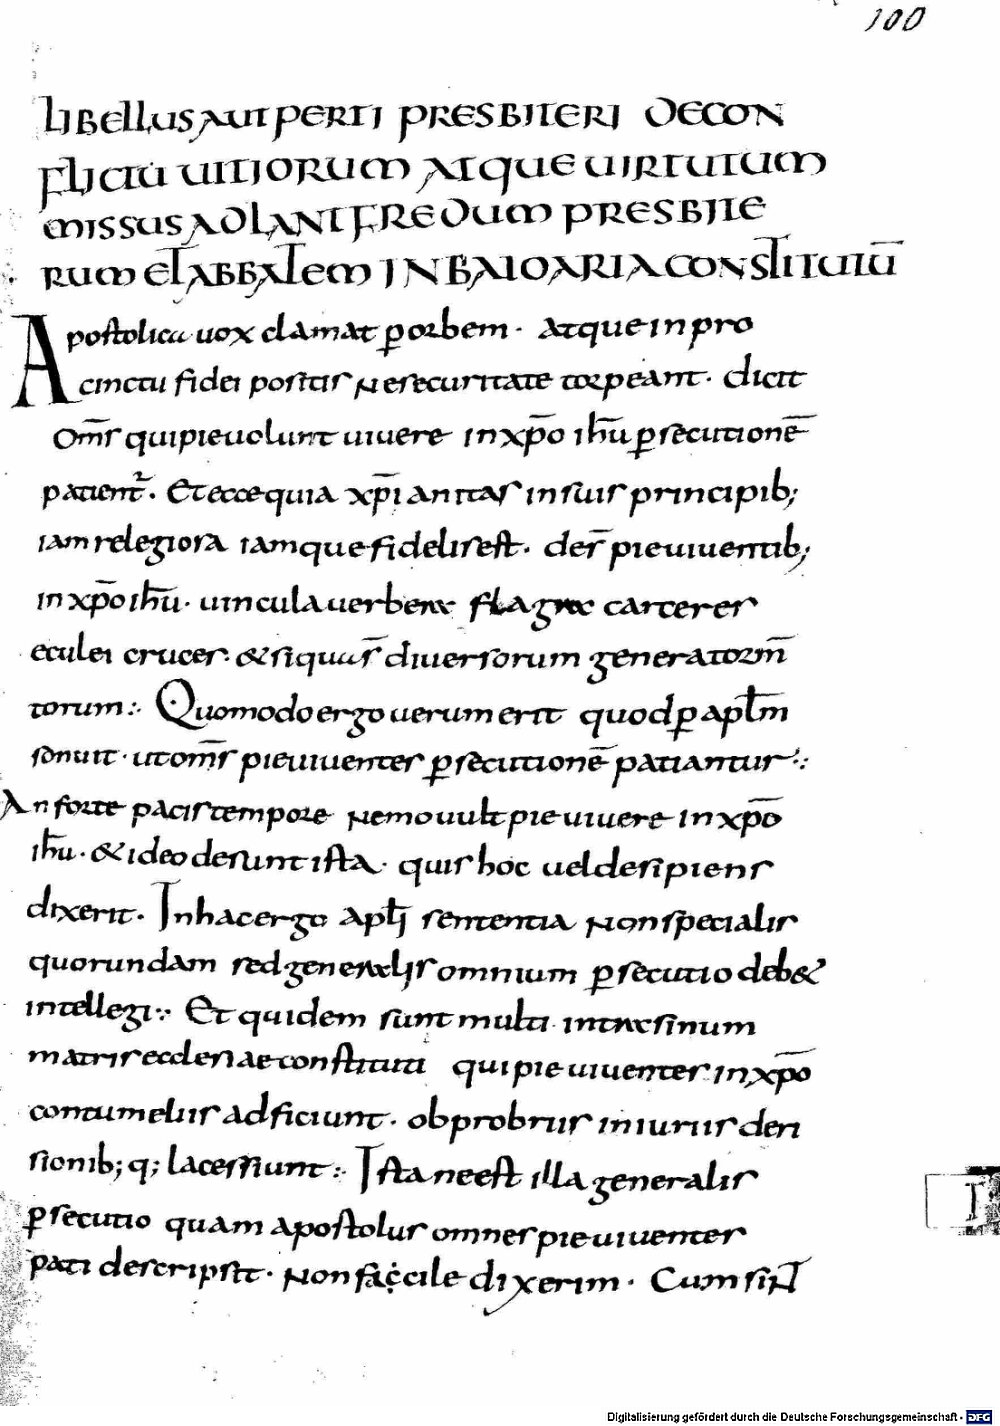 100
LIBELLUS AUTPERTI PRESBITERI DECON
FLICTŪ UITIORUM ATQUE UIRTUTUM
MISSUS AD LANTFREDUM PRESBITE
RUM ET ABBATEM IN BAIOARIA CONSTITUTŪ
Apostolica uox clamat ꝑ orbem · atque in pro
cinctu fidei positis ne securitate torpeant · dicit
om̄s qui pie uolunt uiuere in xp̄o ih̄u ꝑsecutionē
patient᷑ · Et ecce quia xp̄ianitas in suis principib;
iam relegiosa iamque fidelis est · des̄ pie uiuentib;
in xp̄o ih̄u · uincula uerbera flagra carceres
eculei cruces · & si qua s̄ diuersorum genera torm̄
torum :· Quomodo ergo uerum erit quod ꝑ apłm
sonuit · ut om̄s pie uiuentes ꝑsecutionē patiantur :·
An forte pacis tempore nemo uult pie uiuere in xp̄o
ih̄u · & ideo desunt ista · quis hoc uel desipiens
dixerit · In hac ergo apłi sententia non specialis
quorundam sed generalis omnium ꝑsecutio deb&
intellegi :· Et quidem sunt multi intra sinum
matris ecclesiae constituti qui pie uiuentes in xp̄o
contumeliis adficiunt · obprobriis iniuriis deri
sionib; q; lacessiunt :· Ista ne est illa generalis
ꝑsecutio quam apostolus omnes pie uiuentes
pati descripsit · Non facile dixerim · Cum sint
I
Digitalisierung gefördert durch die Deutsche Forschungsgemeinschaft - DFG